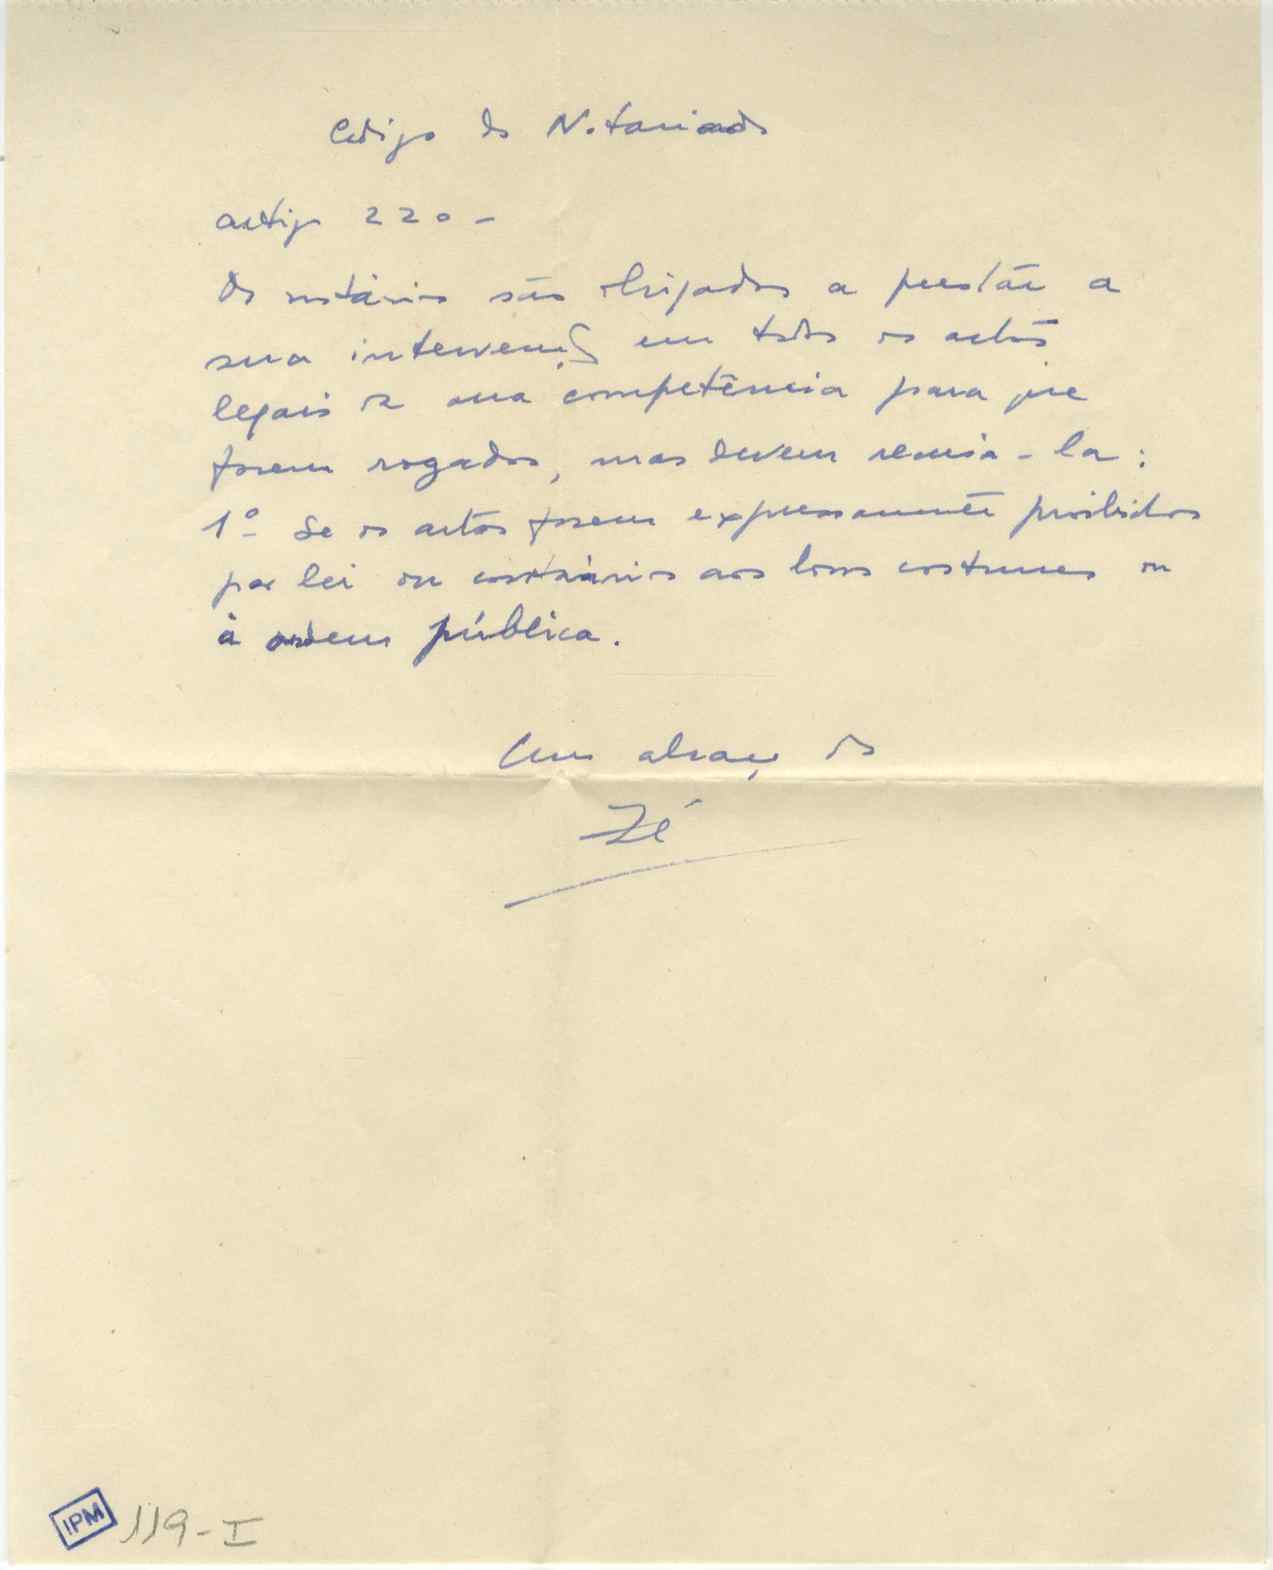 Código do Notariado
artigo 220 -
Os notários são obrigados a prestar a
sua intervenção em todos os actos
legais da sua competência para que
forem rogados, mas devem recusá-la:
1º Se os actos forem expressamente proibidos
por lei ou contrários aos bons costumes ou
à ordem pública.
Um abraço do
Zé
IPM 119-I